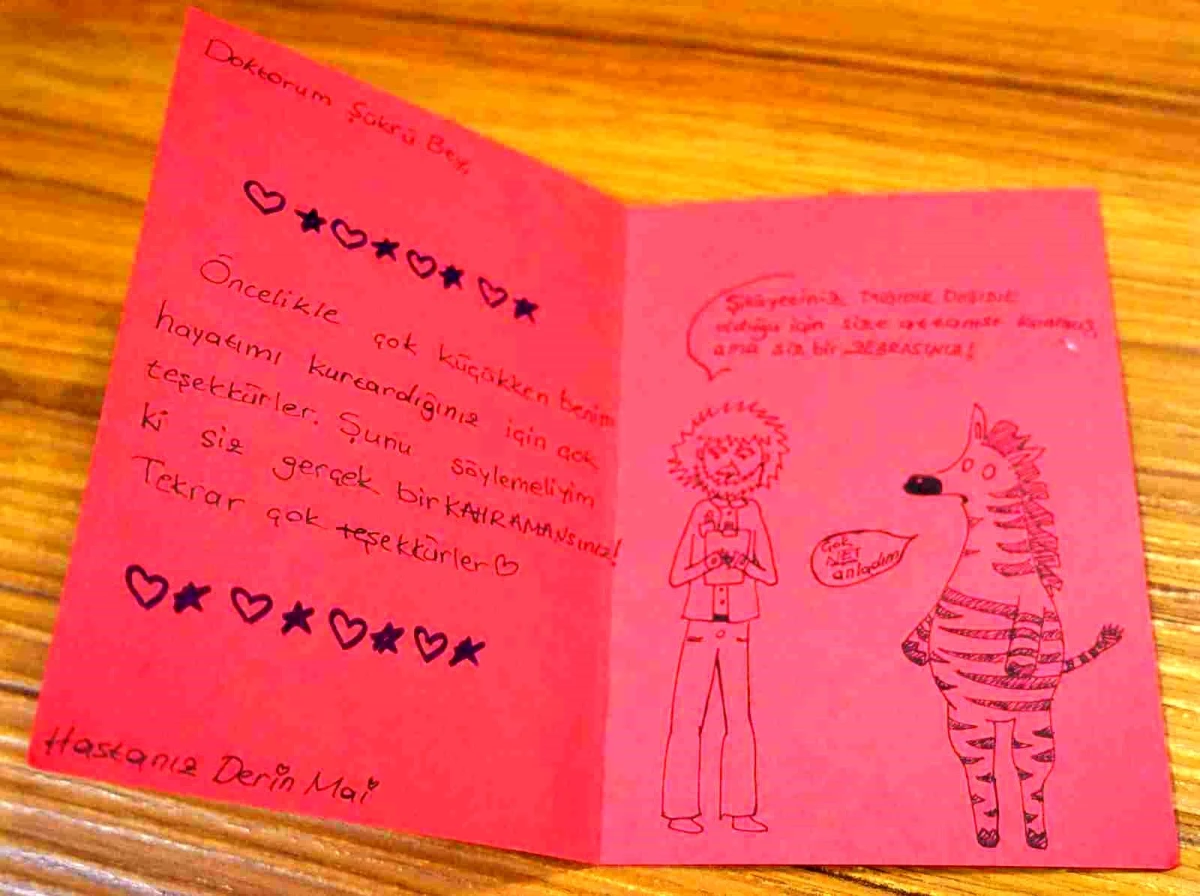 Doktorum Şükrü Bey,
Öncelikle çok küçükken benim
hayatımı kurtardığınız için çok
teşekkürler. Şunu söylemeliyim
ki siz gerçek bir KAHRAMANsınız!
Tekrar çok teşekkürler
Hastanız Derin Mai
Şikayetiniz
olduğu için size
ama siz bir ZEBRASINIZ!
Çok
NET
anladım